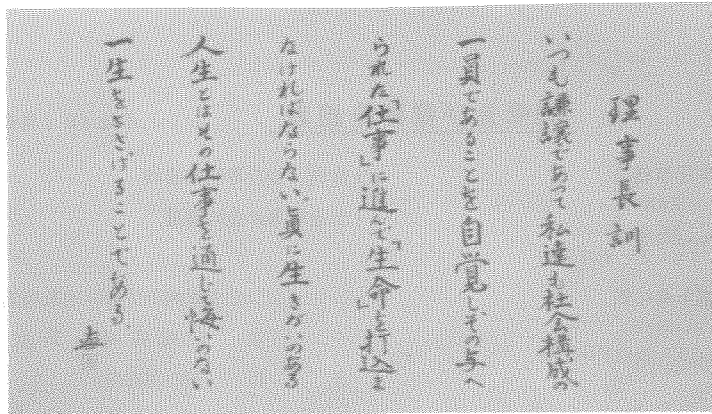 理事長訓
いつも謙譲であって私達も社会構成の
一員であることを自覚しその与へ
られた「仕事」に進んで「生命」を打込ま
なければならない、真に生きがいのある
人生とはその仕事を通じて悔いのない
一生をささげることである。